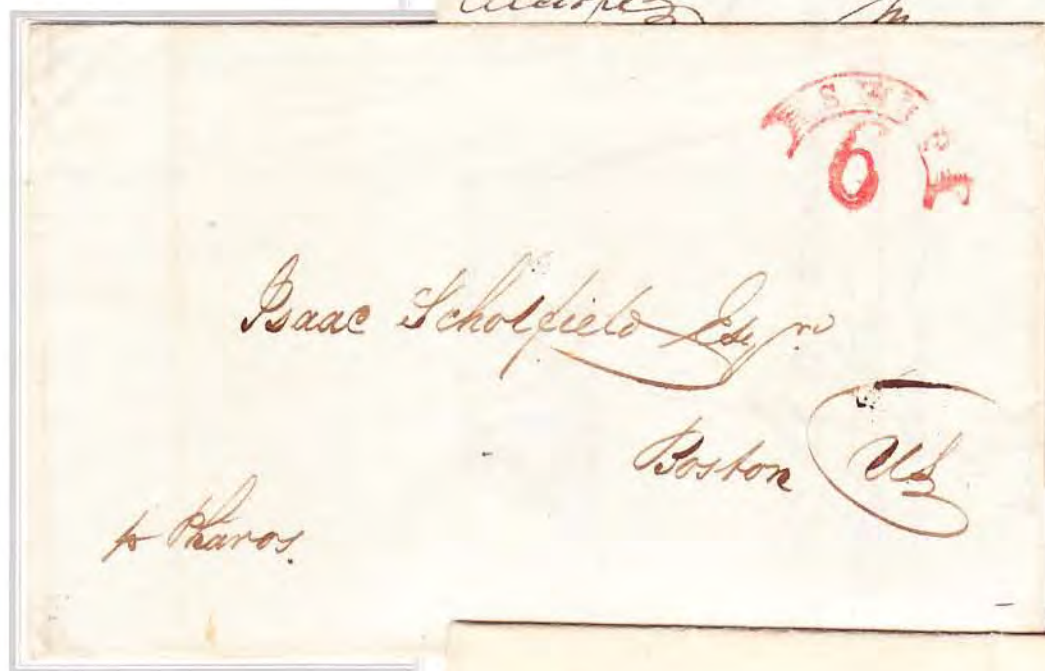 6
Isaac Scholfield Esqre
Boston US
pr Pharos.